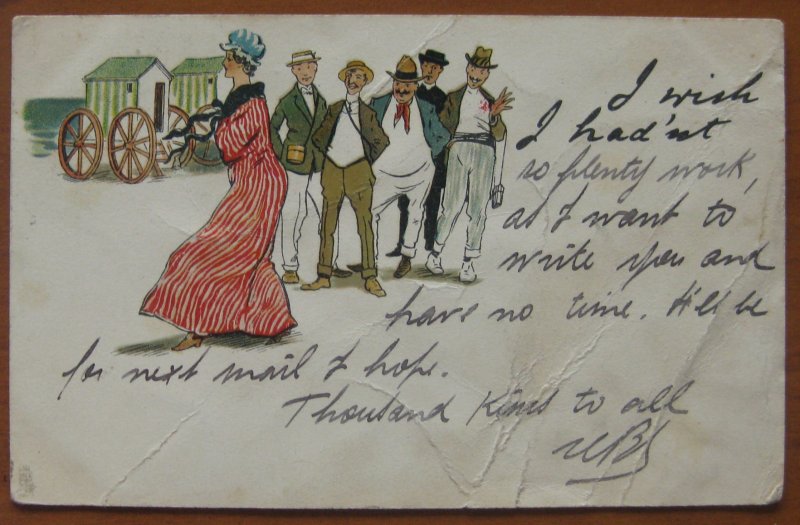 I wish
I had'nt
so plenty work,
as I want to
write you and
have no time. It'll be
for next mail I hope.
Thousand Kisses to all